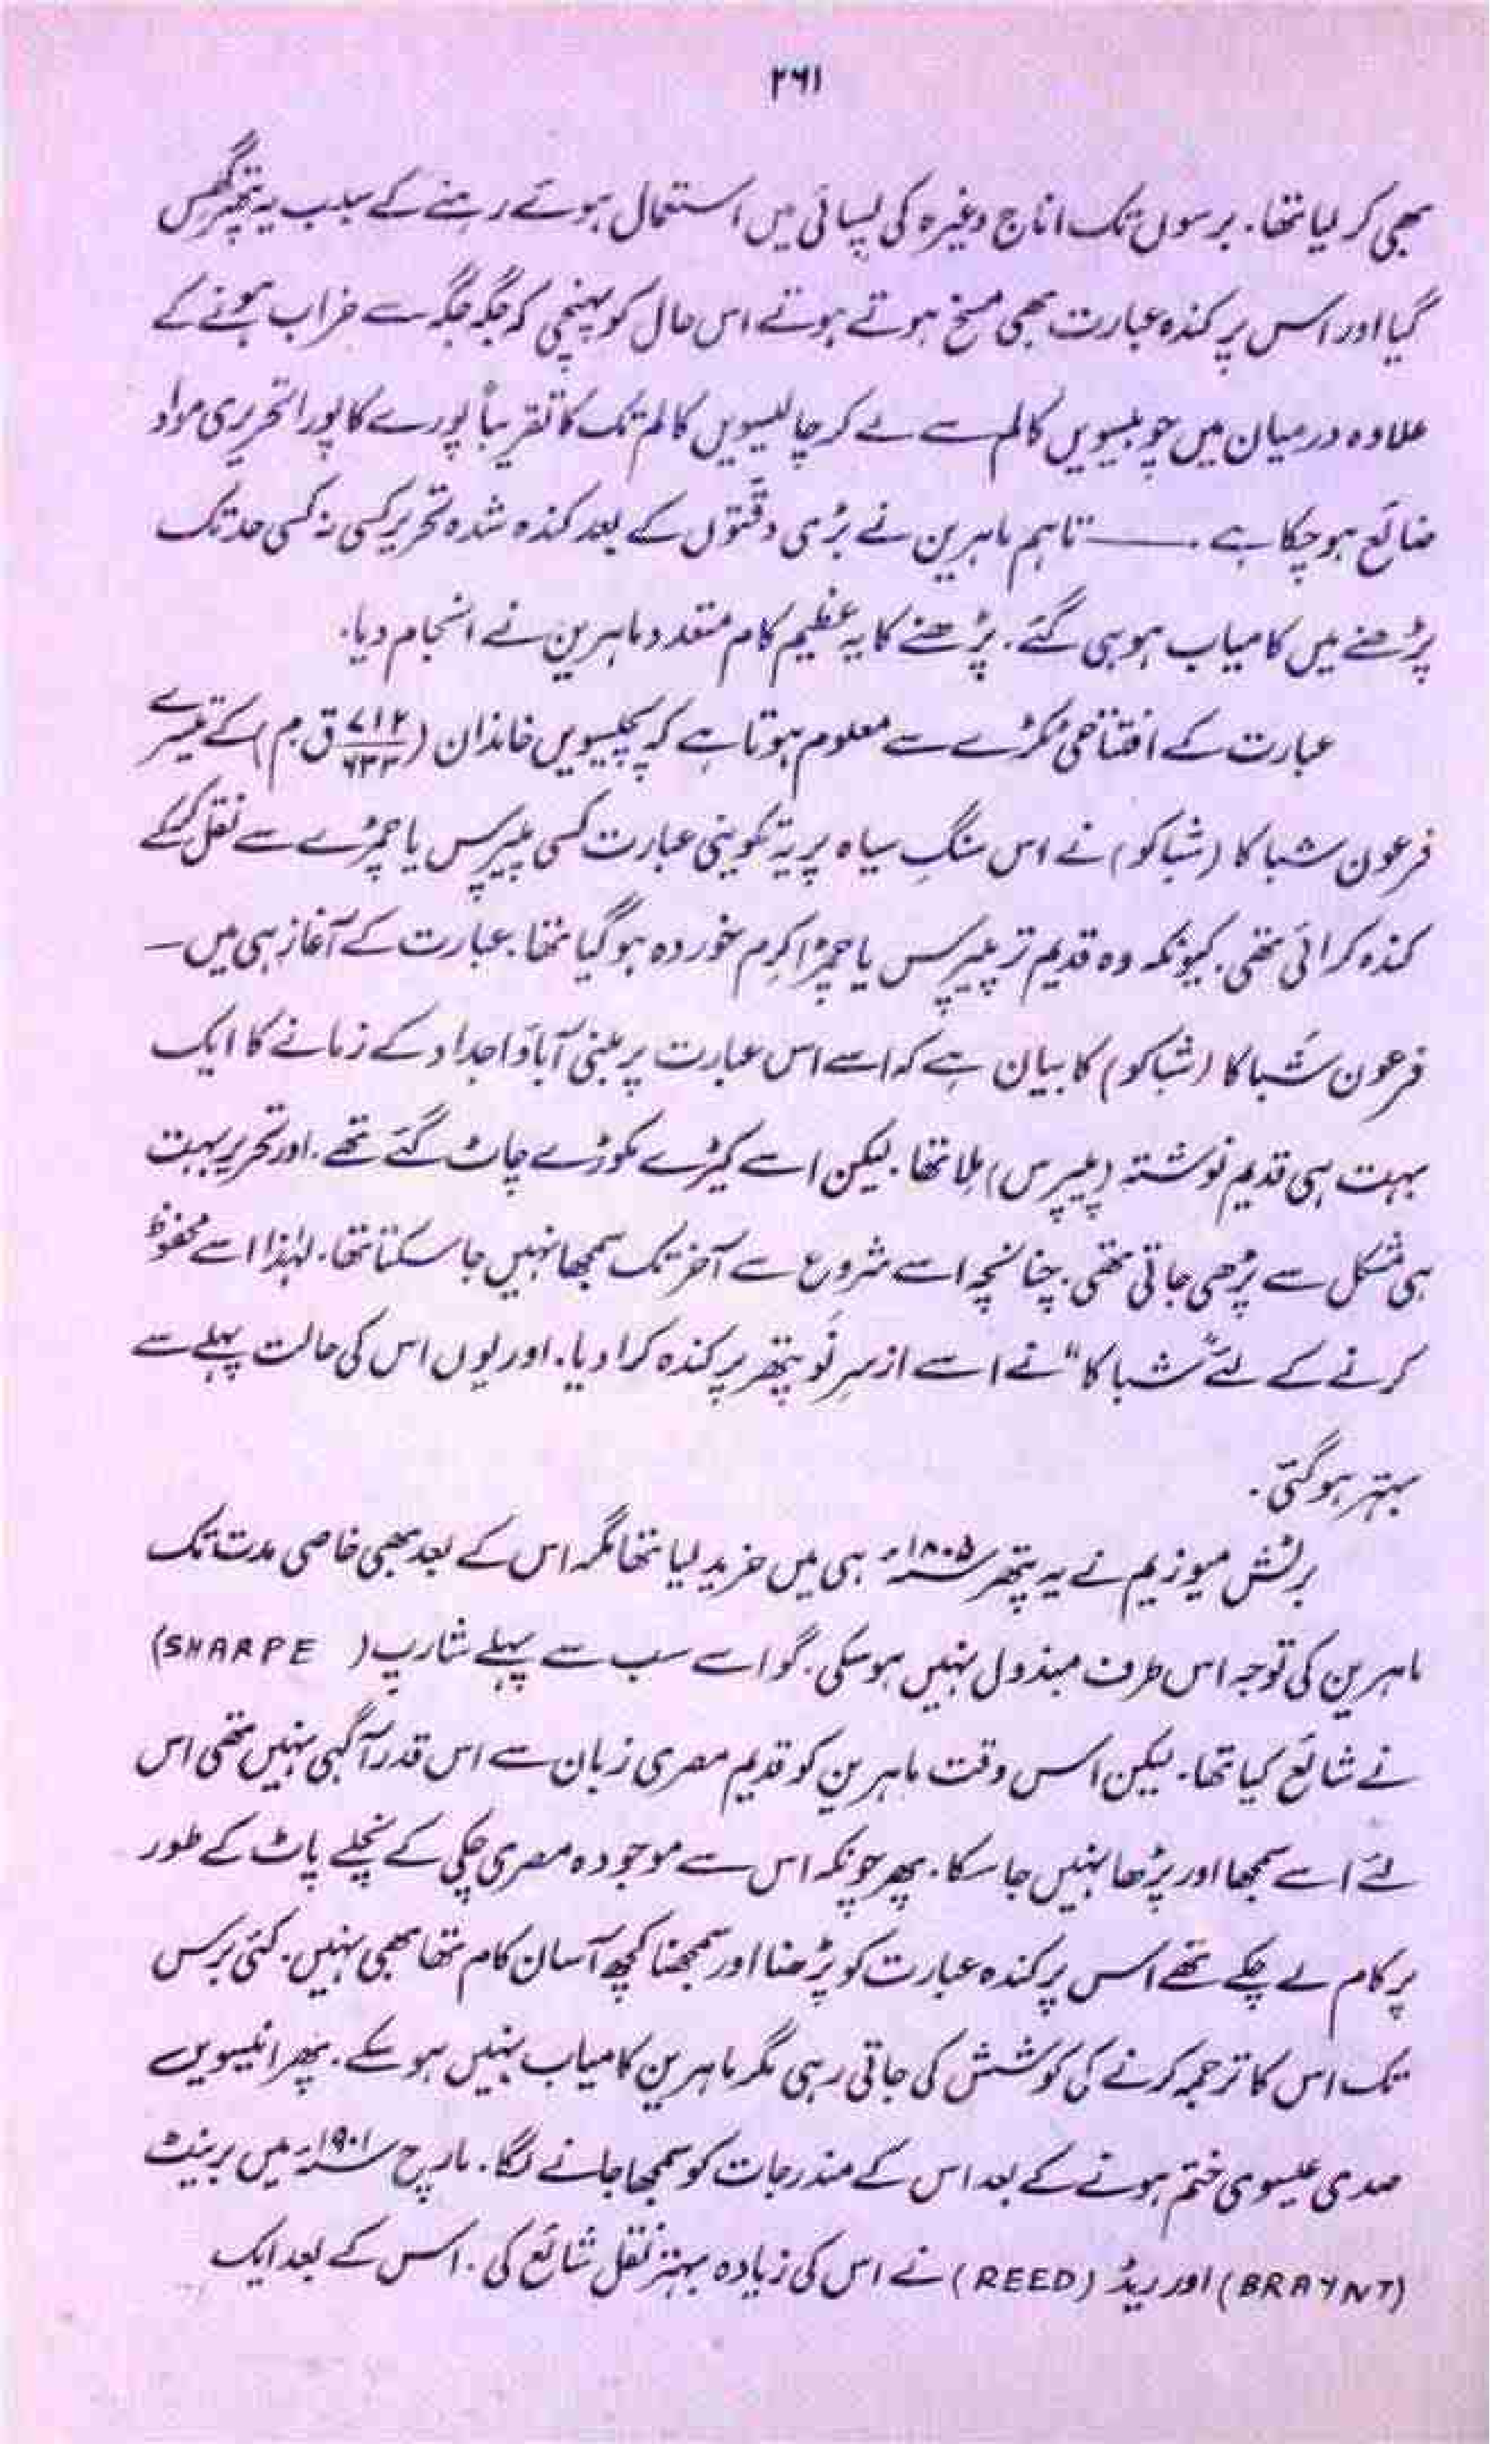 ۲۶۱
بھی کر لیا تھا۔ برسوں تک اناج وغیرہ کی پسائی میں استعمال ہوتے رہنے کے سبب یہ پتھر گھس
گیا اور اس پر کندہ عبارت بھی مسخ ہوتے ہوتے اس حال کو پہنچی کہ جگہ جگہ سے خراب ہونے کے
علاوہ درمیان میں چوبیسویں کالم سے لے کر چالیسویں کالم تک کا تقریباً پورے کا پورا تحریری مواد
ضائع ہو چکا ہے ۔ ــــــ تاہم ماہرین نے بڑی دقتوں کے بعد کندہ شدہ تحریر کسی نہ کسی حد تک
پڑھنے میں کامیاب ہو ہی گئے۔ پڑھنے کا یہ عظیم کام متعدد ماہرین نے انجام دیا۔
عبارت کے افتتاحی ٹکڑے سے معلوم ہوتا ہے کہ پچیسویں خاندان (۷۱۲ ق م) کے تیسرے
فرعون شباکا (شباکو) نے اس سنگِ سیاہ پر یہ تکوینی عبارت کسی پیپرس یا چمڑے سے نقل کر کے
کندہ کرائی تھی۔ کیونکہ وہ قدیم تر پیپرس یا چمڑا کرم خوردہ ہو گیا تھا۔ عبارت کے آغاز ہی میں ــ
فرعون شباکا (شباکو) کا بیان ہے کہ اسے اس عبارت پر مبنی آباؤ اجداد کے زمانے کا ایک
بہت ہی قدیم نوشتہ (پیپرس) ملا تھا۔ لیکن اسے کیڑے مکوڑے چاٹ گئے تھے۔ اور تحریر بہت
ہی مشکل سے پڑھی جاتی تھی۔ چنانچہ اسے شروع سے آخر تک سمجھا نہیں جا سکتا تھا۔ لہٰذا اسے محفوظ
کرنے کے لئے "شباکا" نے اسے از سرِ نَو پتھر پر کندہ کرا دیا۔ اور یوں اس کی حالت پہلے سے
بہتر ہو گئی۔
برٹش میوزیم نے یہ پتھر ۱۸۰۵ء ہی میں خرید لیا تھا مگر اس کے بعد بھی خاصی مدت تک
ماہرین کی توجہ اس طرف مبذول نہیں ہو سکی۔ گو اسے سب سے پہلے شارپ (SHARPE)
نے شائع کیا تھا۔ لیکن اس وقت ماہرین کو قدیم مصری زبان سے اس قدر آگہی نہیں تھی اس
لئے اسے سمجھا اور پڑھا نہیں جا سکا۔ پھر چونکہ اس سے موجودہ مصری چکی کے نچلے پاٹ کے طور
پر کام لے چکے تھے اس پر کندہ عبارت کو پڑھنا اور سمجھنا کچھ آسان کام تھا بھی نہیں۔ کئی برس
تک اس کا ترجمہ کرنے کی کوشش کی جاتی رہی مگر ماہرین کامیاب نہیں ہو سکے۔ پھر انیسویں
صدی عیسوی ختم ہونے کے بعد اس کے مندرجات کو سمجھا جانے لگا۔ مارچ ۱۹۰۱ء میں برینٹ
(BRAYNT) اور ریڈ (REED) نے اس کی زیادہ بہتر نقل شائع کی۔ اس کے بعد ایک